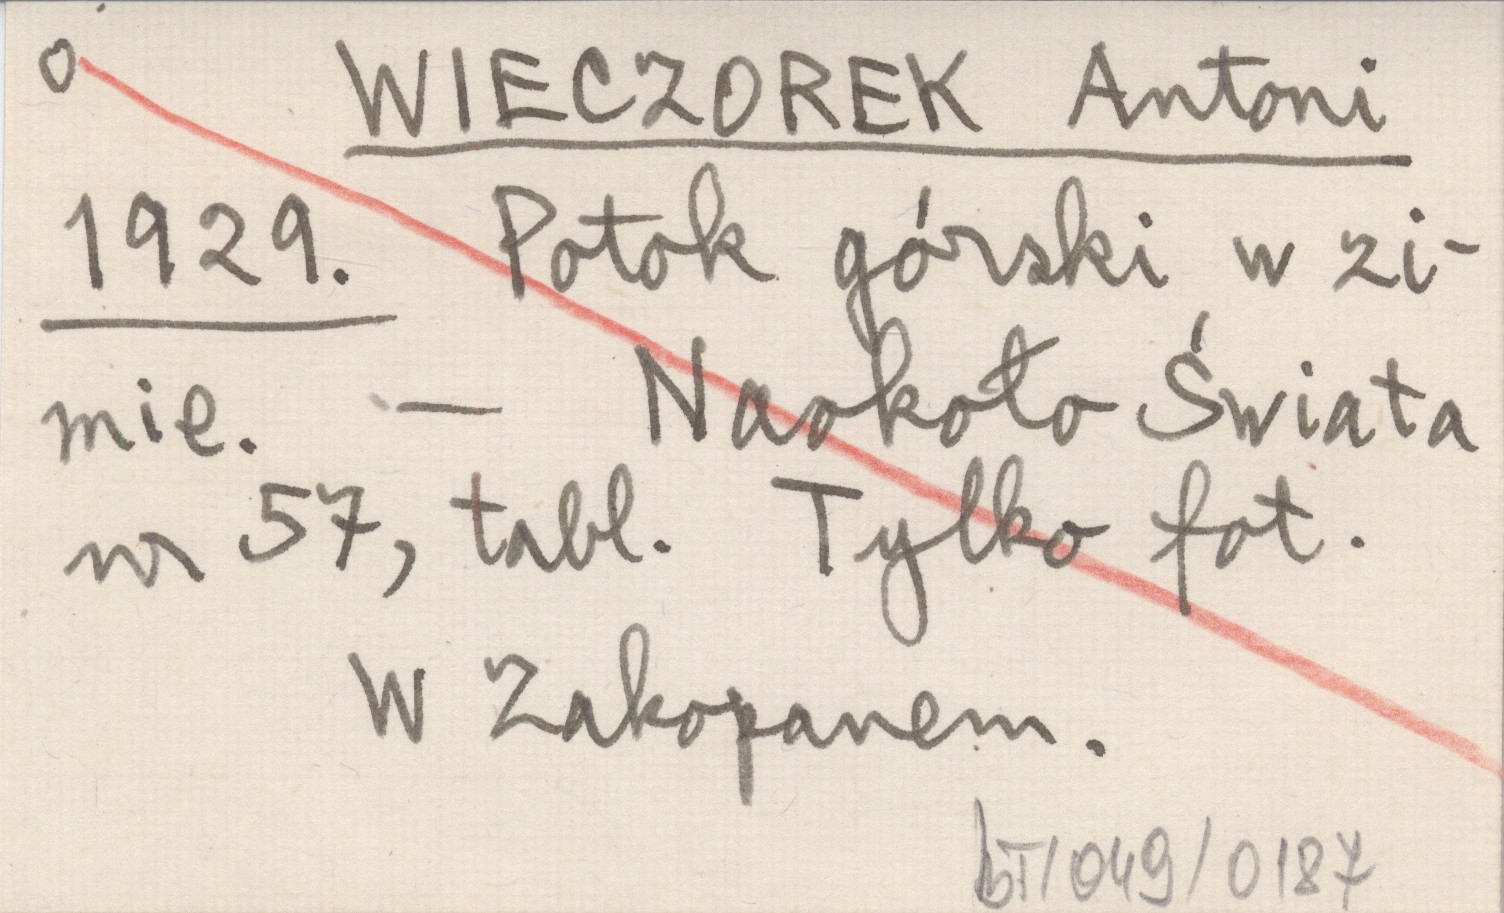 o WIECZOREK Antoni
1929. Potok górski w zi-
mie. — Naokoło Świata
nr 57, tabl. Tylko fot.
W Zakopanem.
bT/049/0187